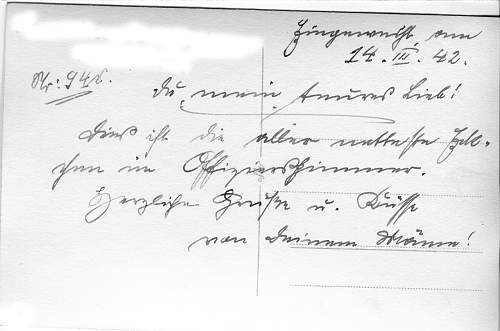 Eingereicht am
14. III. 42.
Nr: 946.
Du mein teures Lieb!
Dies ist die aller netteste Eck-
chen im Offizierszimmer.
Herzliche Grüße u. Küsse
von Deinem Männe!